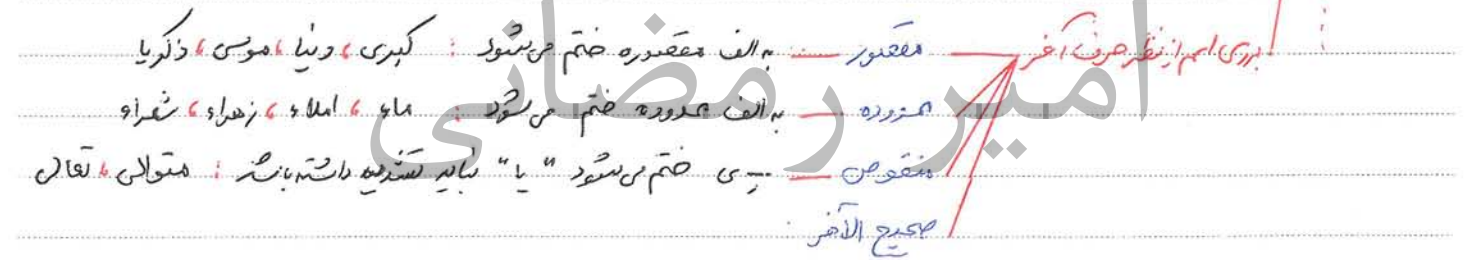 بررسی اسم از نظر حرف آخر
مقصور — به الف مقصوره ختم می‌شود : کبری ، دنیا ، موسی ، ذکریا
ممدوده — به الف ممدوده ختم می‌شود : ماء ، املاء ، زهراء ، شعراء
منقوص — ـِـ ی ختم می‌شود "یا" نباید تشدید داشته باشد : متوالی ، تعالی
صحیح الآخر :
امیر رمضانی